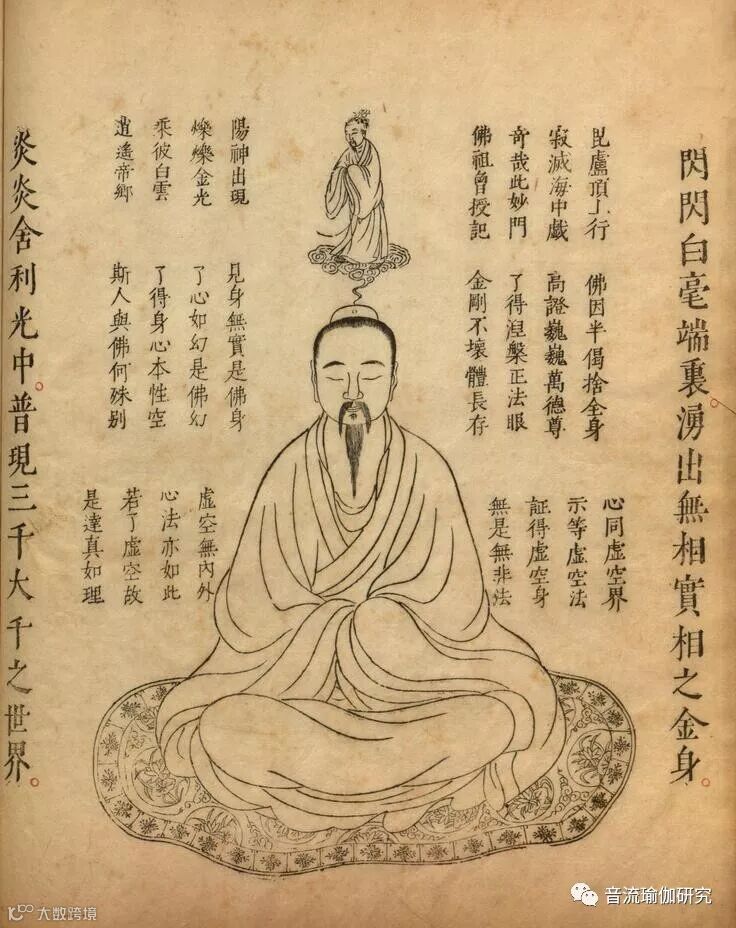 閃閃白毫端裏湧出無相實相之金身。
毘盧頂上行
寂滅海中戲
奇哉此妙門
佛祖曾授記
佛因半偈捨全身
高證巍巍萬德尊
了得涅槃正法眼
金剛不壞體長存
心同虛空界
示等虛空法
証得虛空身
無是無非法
陽神出現
爍爍金光
乘彼白雲
逍遙帝鄉
見身無實是佛身
了心如幻是佛幻
了得身心本性空
斯人與佛何殊別
虛空無內外
心法亦如此
若了虛空故
是達真如理
炎炎舍利光中。普現三千大千之世界。
音流瑜伽研究
大数跨境